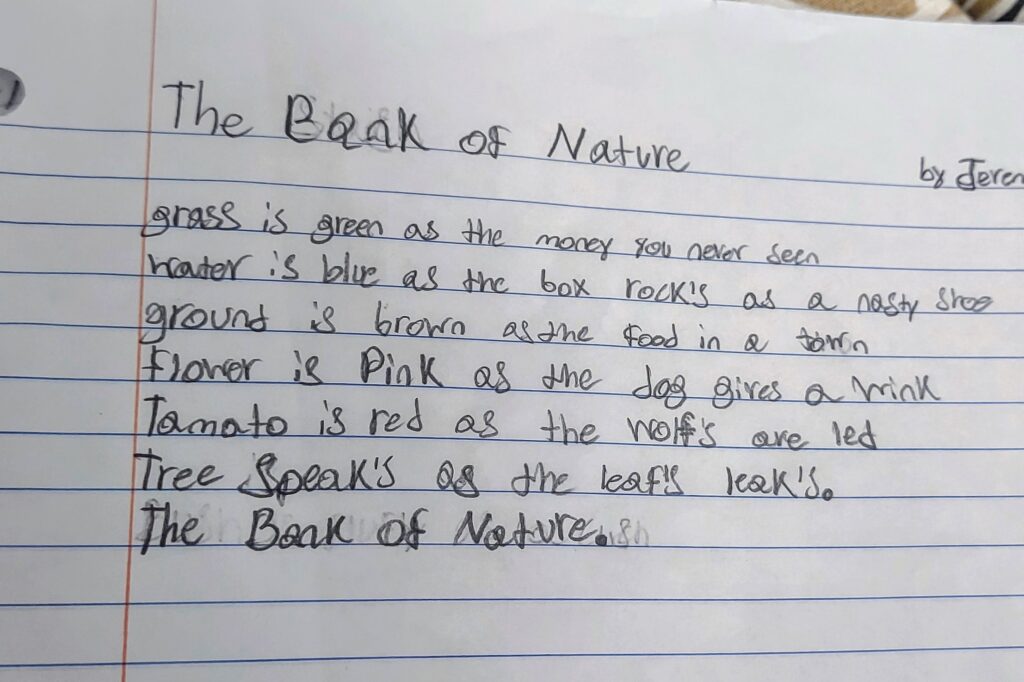 The Bank of Nature
by Jerem
grass is green as the money you never seen
water is blue as the box rock's as a nasty shoe
ground is brown as the food in a town
flower is Pink as the dog gives a wink
Tamato is red as the wolf's are led
Tree Speak's as the leaf's leak's.
The Bank of Nature.